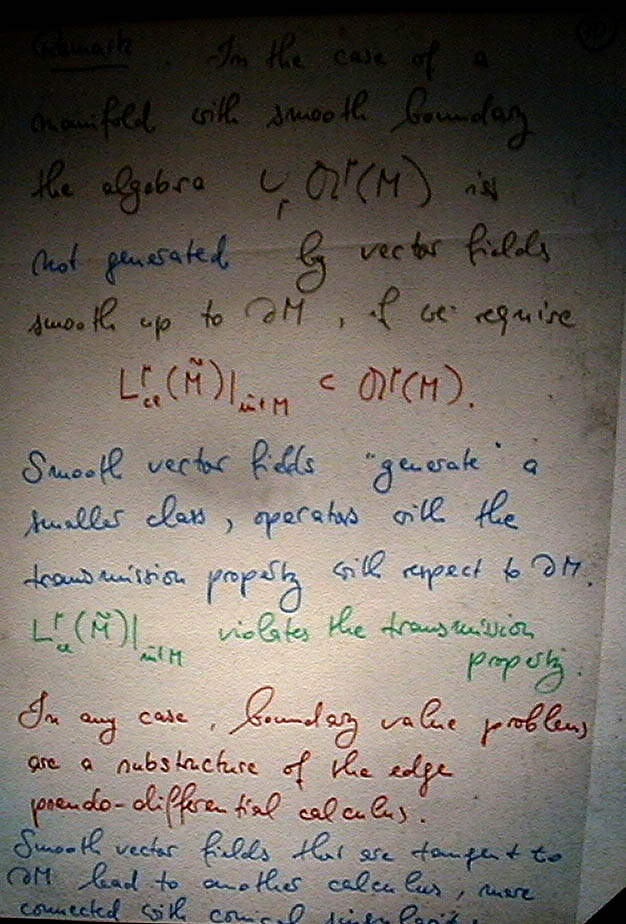 Remark. In the case of a
manifold with smooth boundary
the algebra ∪_r 𝔄^r(M) is
not generated by vector fields
smooth up to ∂M, if we require
L^r_cl(M̃)|_int M ⊂ 𝔄^r(M).
Smooth vector fields "generate" a
smaller class, operators with the
transmission property with respect to ∂M.
L^r_cl(M̃)|_int M violates the transmission
property.
In any case, boundary value problems
are a substructure of the edge
pseudo-differential calculus.
Smooth vector fields that are tangent to
∂M lead to another calculus, more
connected with conical